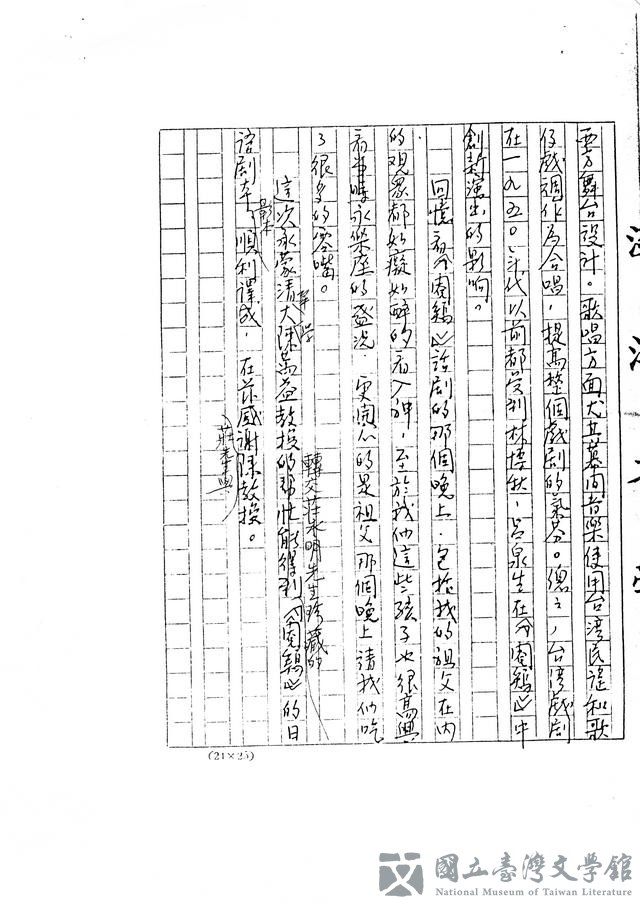 要方舞台設計。歌唱方面尤其幕间音樂使用台湾民謠和歌
仔戲調作為合唱，提高整個戲剧的氣芬。總之，台湾戲剧
在一九五〇年代以前都受到林博秋，呂泉生在《閹鷄》中
創新演出的影响。
回憶看《閹鷄》話剧的那個晚上．包括我的祖父在內
的观眾都如癡如醉的看入神，至於我们這些孩子也很高興
看當時永樂座的盛况．更開心的是祖父那個晚上請我们吃
了很多的零嘴。
這次承蒙清大陳萬益教授的帮忙能得到《閹鷄》的日
轉交莊永明先生珍藏的
語剧本，順利譯成，在茲感謝陳教授。
莊先生與
(21×25)
國立臺灣文學館
National Museum of Taiwan Literature